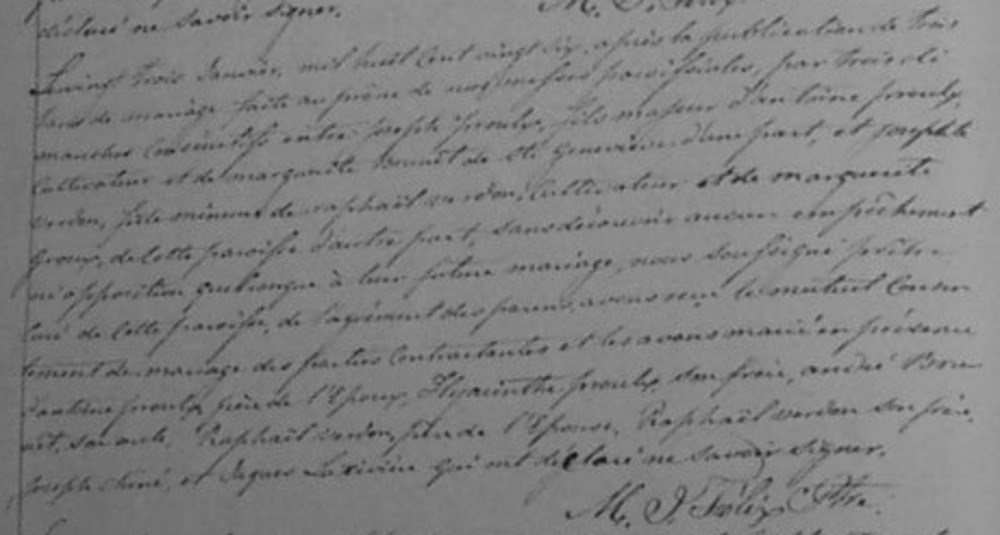 déclaré ne savoir signer.
M. J. Felix
Le vingt trois Janvier mil huit cent vingt six, après la publication de trois
bans de mariage faite au prône de nos messes paroissiales, par trois di
manches consécutifs entre joseph proulx, fils majeur d'antoine proulx,
cultivateur et de marguerite Brunet de Ste Geneviève d'une part, et josephte
verdon, fille mineure de raphaël verdon, cultivateur et de marguerite
Groux, de cette paroisse d'autre part, sans découvrir aucun empêchement
ni opposition quelconque à leur future mariage, nous soussigné prêtre
curé de cette paroisse, de l'agrément des parens, avons reçu le mutuel Consen
tement de mariage des parties Contractantes et les avons marié en présence
d'antoine proulx père de l'Epoux, Hyacinthe proulx son frère, andré Bru
net, son oncle, Raphaël verdon, père de l'Epouse, Raphaël verdon son frère,
joseph et Jaques Larivière qui ont déclaré ne savoir signer.
M. J. Félix Ptre.